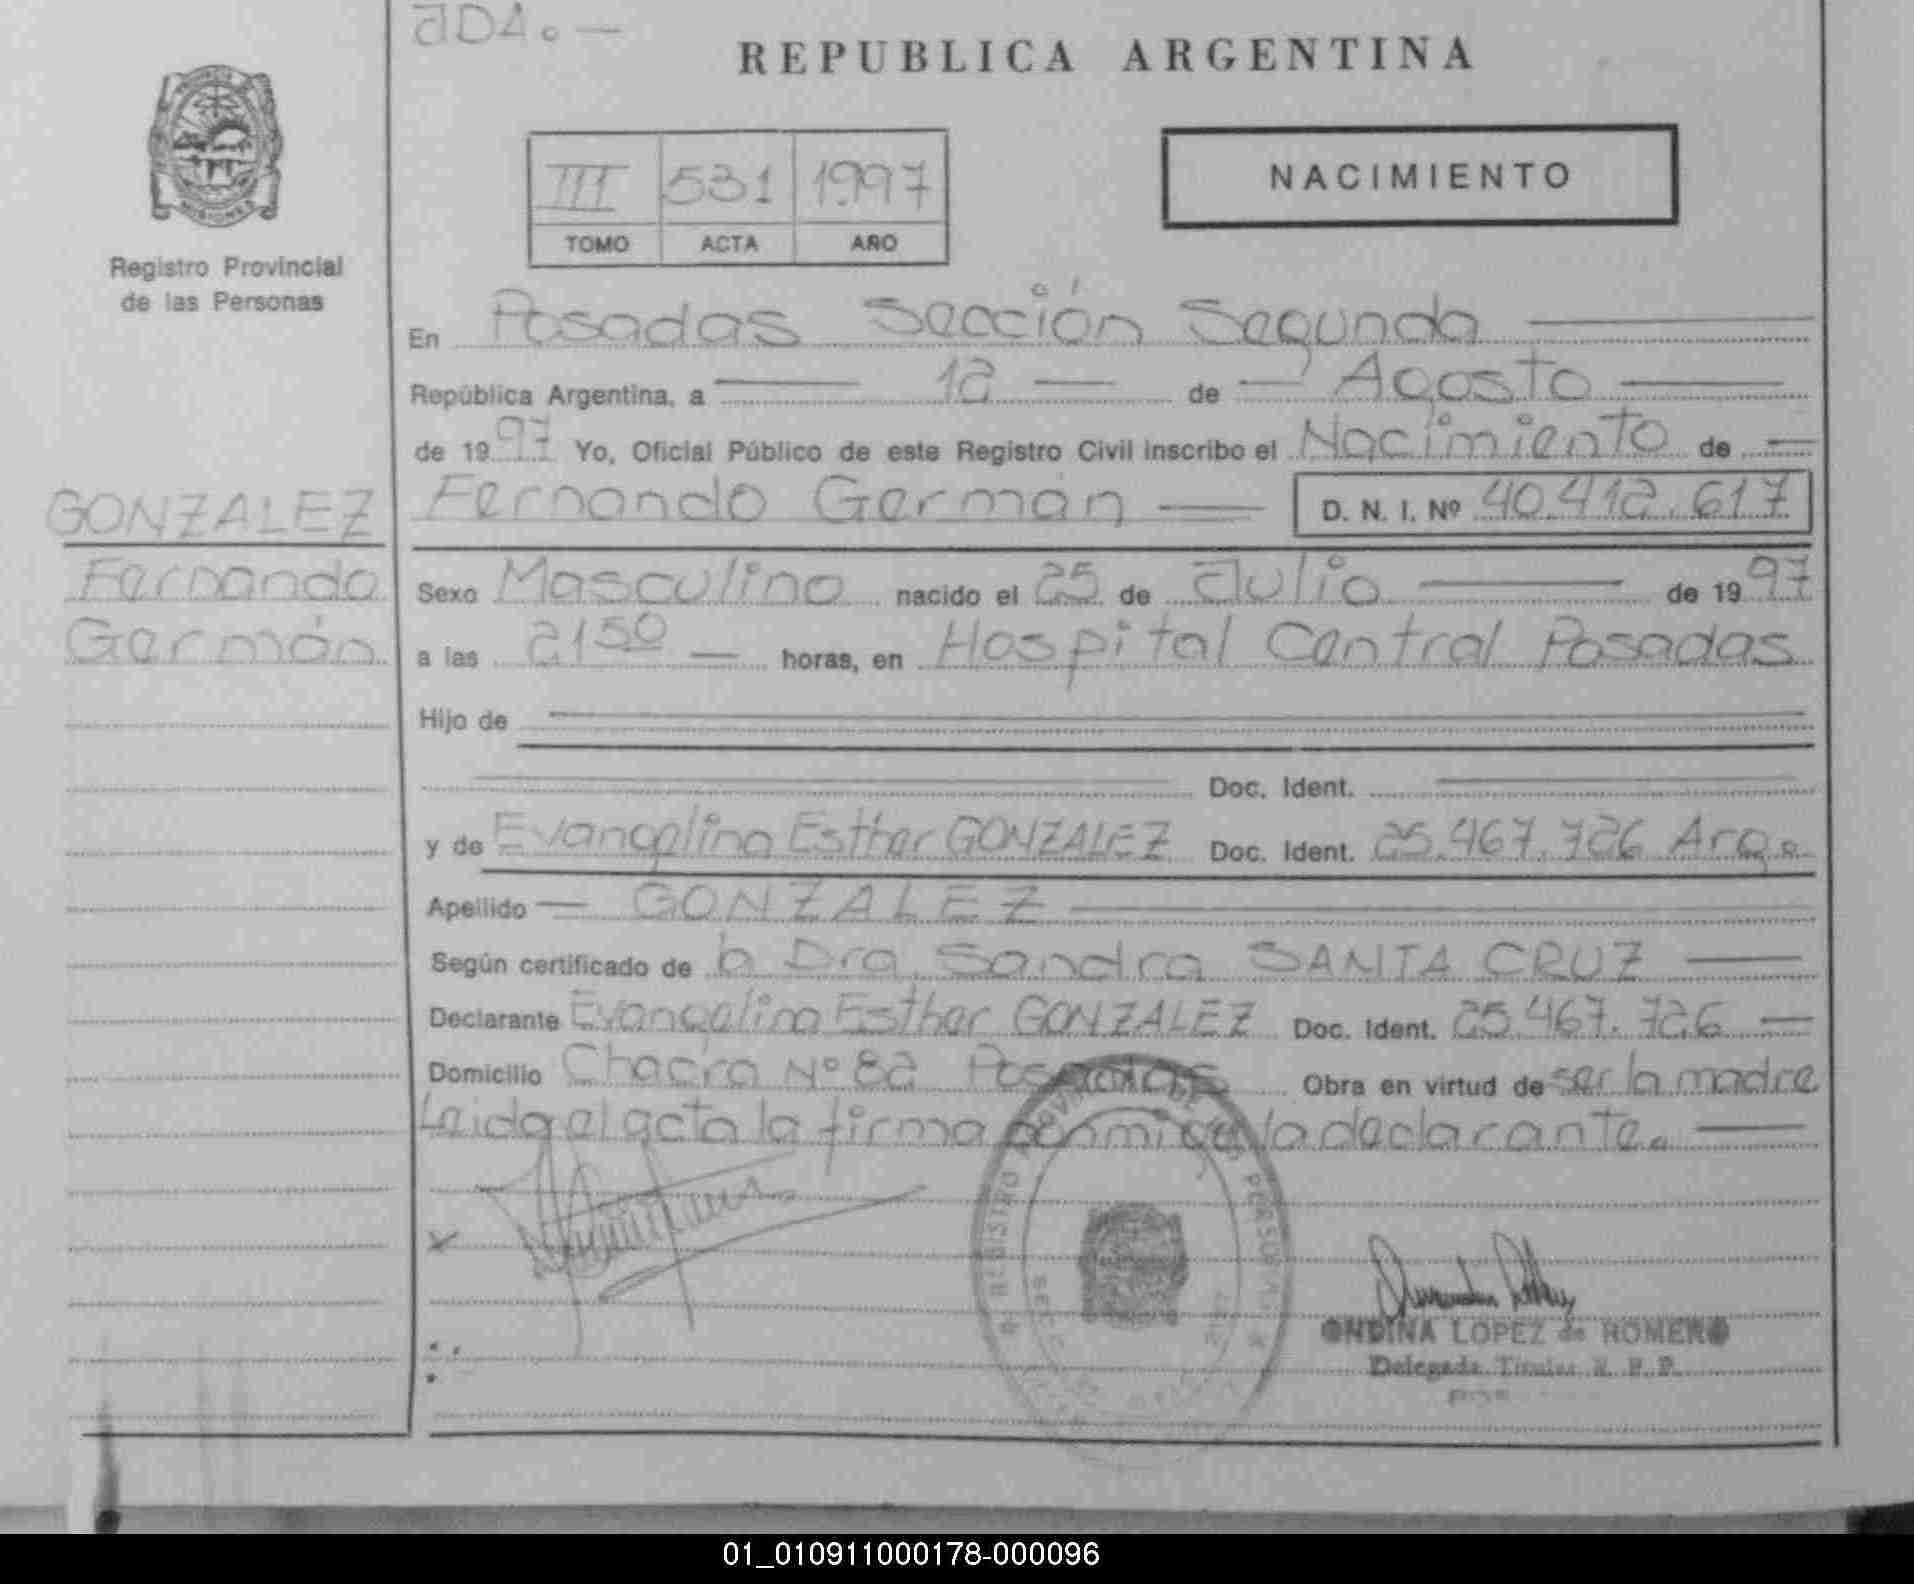 JDA. —
REPUBLICA ARGENTINA
MISIONES
Registro Provincial
de las Personas
III 531 1997
TOMO ACTA AÑO
NACIMIENTO
En Posadas Sección Segunda
República Argentina, a 12 de Agosto
de 1997 Yo, Oficial Público de este Registro Civil inscribo el Nacimiento de
GONZALEZ
Fernando
Germán
Fernando Germán D. N. I. Nº 40.412.617
Sexo Masculino nacido el 25 de Julio de 1997
a las 21 50 horas, en Hospital Central Posadas
Hijo de
Doc. Ident.
y de Evangelina Esther GONZALEZ Doc. Ident. 25.467.726 Arg.
Apellido GONZALEZ
Según certificado de la Dra. Sandra SANTA CRUZ
Declarante Evangelina Esther GONZALEZ Doc. Ident. 25.467.726
Domicilio Chacra Nº 82 Posadas Obra en virtud de ser la madre
Leida el acta la firma conmigo la declarante.
REGISTRO PROVINCIAL DE LAS PERSONAS
ONDINA LOPEZ de ROMERO
Delegada Titular R. P. P.
01_010911000178-000096